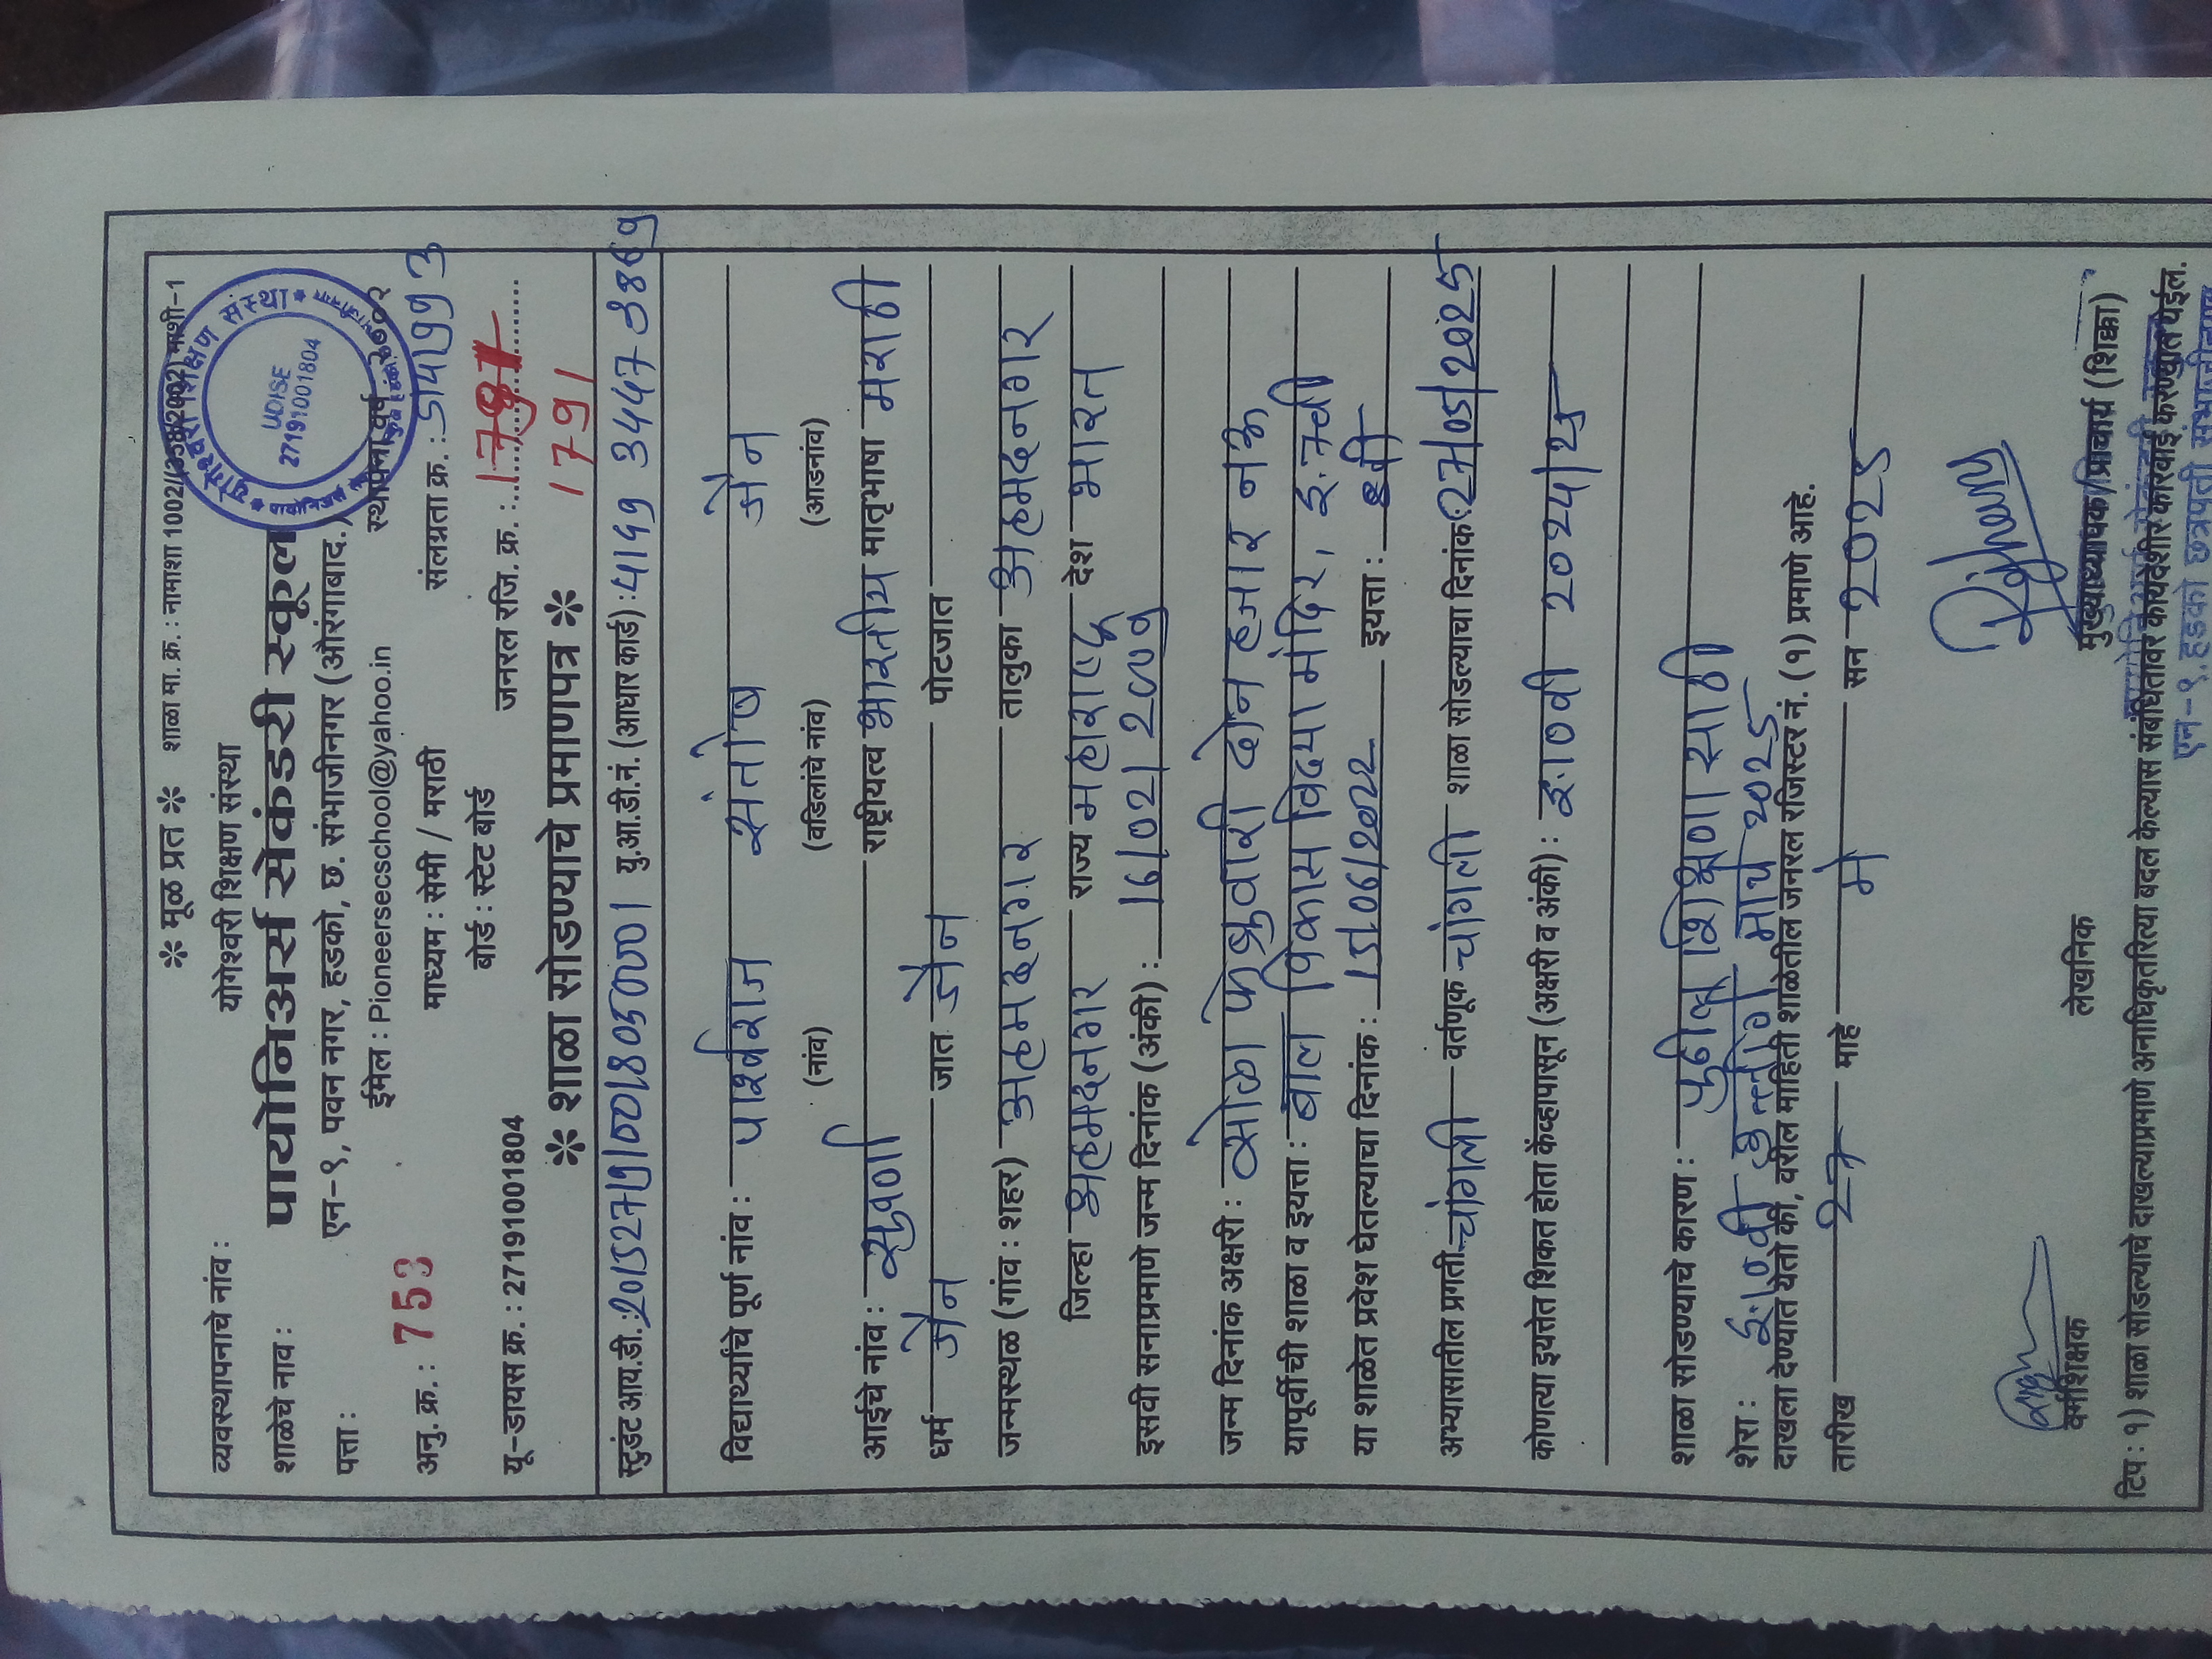 ✻ मूळ प्रत ✻ शाळा मा. क्र. : नामाशा 1002/ माशी-1
व्यवस्थापनाचे नांव : योगेश्वरी शिक्षण संस्था
शाळेचे नाव : पायोनिअर्स सेकंडरी स्कूल
पत्ता : एन-९, पवन नगर, हडको, छ. संभाजीनगर (औरंगाबाद.)
ईमेल : Pioneersecschool@yahoo.in स्थापना वर्ष
शिक्षण संस्था
UDISE
27191001804
अनु. क्र. : 753 माध्यम : सेमी / मराठी संलग्नता क्र. :
बोर्ड : स्टेट बोर्ड
यू-डायस क्र. : 27191001804 जनरल रजि. क्र. :
1791
✻ शाळा सोडण्याचे प्रमाणपत्र ✻
स्टुडंट आय.डी. : यु.आ.डी.नं. (आधार कार्ड) :
विद्यार्थ्यांचे पूर्ण नांव : पार्श्वराज संतोष जैन
(नांव) (वडिलांचे नांव) (आडनांव)
आईचे नांव : सुवर्णा राष्ट्रीयत्व भारतीय मातृभाषा मराठी
धर्म जैन जात जैन पोटजात
जन्मस्थळ (गांव : शहर) अहमदनगर तालुका अहमदनगर
जिल्हा अहमदनगर राज्य महाराष्ट्र देश भारत
इसवी सनाप्रमाणे जन्म दिनांक (अंकी) : 16/02/2009
जन्म दिनांक अक्षरी : सोळा फेब्रुवारी दोन हजार नऊ
यापूर्वीची शाळा व इयत्ता : बाल विकास विद्या मंदिर, इ. 7वी
या शाळेत प्रवेश घेतल्याचा दिनांक : 15/06/2022 इयत्ता : 8वी
अभ्यासातील प्रगती चांगली वर्तणूक चांगली शाळा सोडल्याचा दिनांक 27/05/2025
कोणत्या इयत्तेत शिकत होता केंव्हापासून (अक्षरी व अंकी) : इ. 10वी 2024/25
शाळा सोडण्याचे कारण : पुढील शिक्षणासाठी
शेरा : इ. 10वी उत्तीर्ण मार्च 2025
दाखला देण्यात येतो की, वरील माहिती शाळेतील जनरल रजिस्टर नं. (१) प्रमाणे आहे.
तारीख 27 माहे मे सन 2025
वर्गशिक्षक लेखनिक मुख्याध्यापक/प्राचार्य (शिक्का)
टिप : १) शाळा सोडल्याचे दाखल्याप्रमाणे अनाधिकृतरित्या बदल केल्यास संबंधितांवर कायदेशीर कारवाई करण्यात येईल.
एन-९, हडको छत्रपती संभाजीनगर